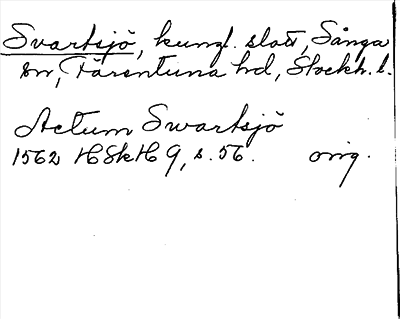 Svartsjö, kungl. slott, Sånga
sn, Färentuna hd, Stockh. l.
Actum Swartsjö
1562 HSkH 9, s. 56. orig.